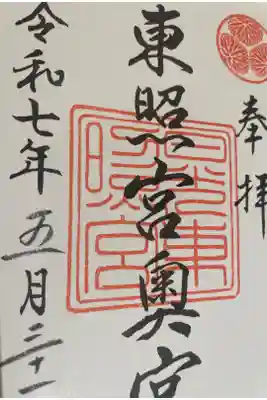 奉拝
東照宮奥宮
日光東
照宮
令和七年五月三十一